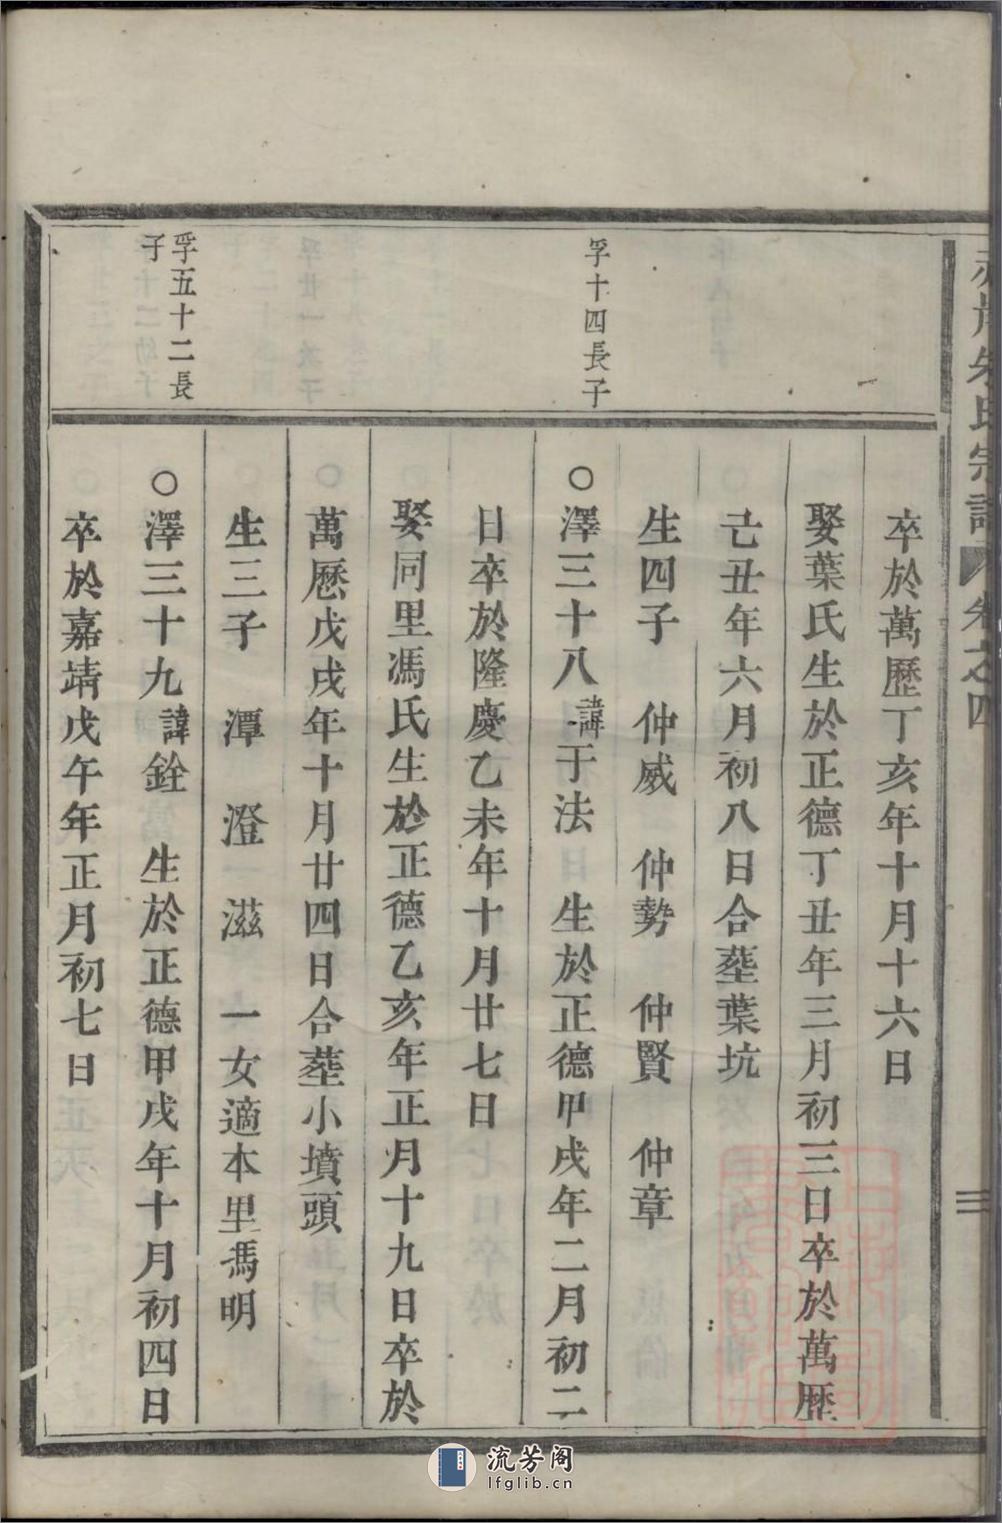 朱氏宗譜 卷之四 三
卒於萬歷丁亥年十月十六日
娶葉氏生於正德丁丑年三月初三日卒於萬歷
己丑年六月初八日合塟葉坑
生四子 仲威 仲勢 仲賢 仲章
孚十四長子
○澤三十八諱于法 生於正德甲戌年二月初二
日卒於隆慶乙未年十月廿七日
娶同里馮氏生於正德乙亥年正月十九日卒於
○萬歷戊戌年十月廿四日合塟小墳頭
生三子 潭 澄 滋 一女適本里馮明
孚五十二長
子
○澤三十九諱銓 生於正德甲戌年十月初四日
卒於嘉靖戊午年正月初七日
流芳阁
lfglib.cn